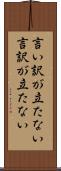 言い訳が立たない
言訳が立たない